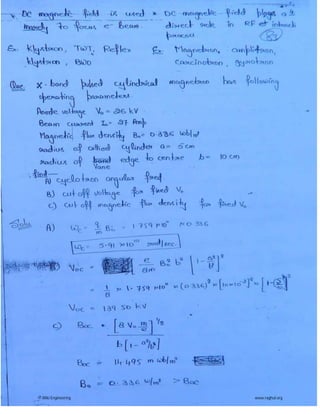 DC magnetic field is used * DC magnetic field plays a
merely to focus e⁻ beam. direct role in RF interacti
process
Ex- Klystron, TWT, Reflex Ex- Magnetron, amplitron,
klystron, BWO Carcinotron, gyrotron
Que X-band pulsed cylindrical magnetron has following
operating parameters
Anode voltage V₀ = 26 kV
Beam current I₀ = 27 Amp
Magnetic flux density B₀ = 0.336 wb/m²
radius of cathod cylinder a = 5 cm
radius of vane edge to centre b = 10 cm
find
A) cyclotron angular freq
B) cut off voltage for fixed
C) cut off magnetic flux density for fixed V₀
Soln A) ωc = e/m B₀ = 1.759 × 10¹¹ × 0.336
ωc = 5.91 × 10¹⁰ rad/sec.
Voc = e/8m B₀² b² [1 - a²/b²]²
= 1/8 × 1.759 × 10¹¹ × (0.336)² × (10×10⁻²)² ×
Voc = 139.50 kV
C) Boc = [8 V₀ m/e]^1/2
b [1 - a²/b²]
Boc = 14.495 m wb/m²
B₀ = 0.336 w/m² > Boc
© IMU Engineering
www.raghul.org